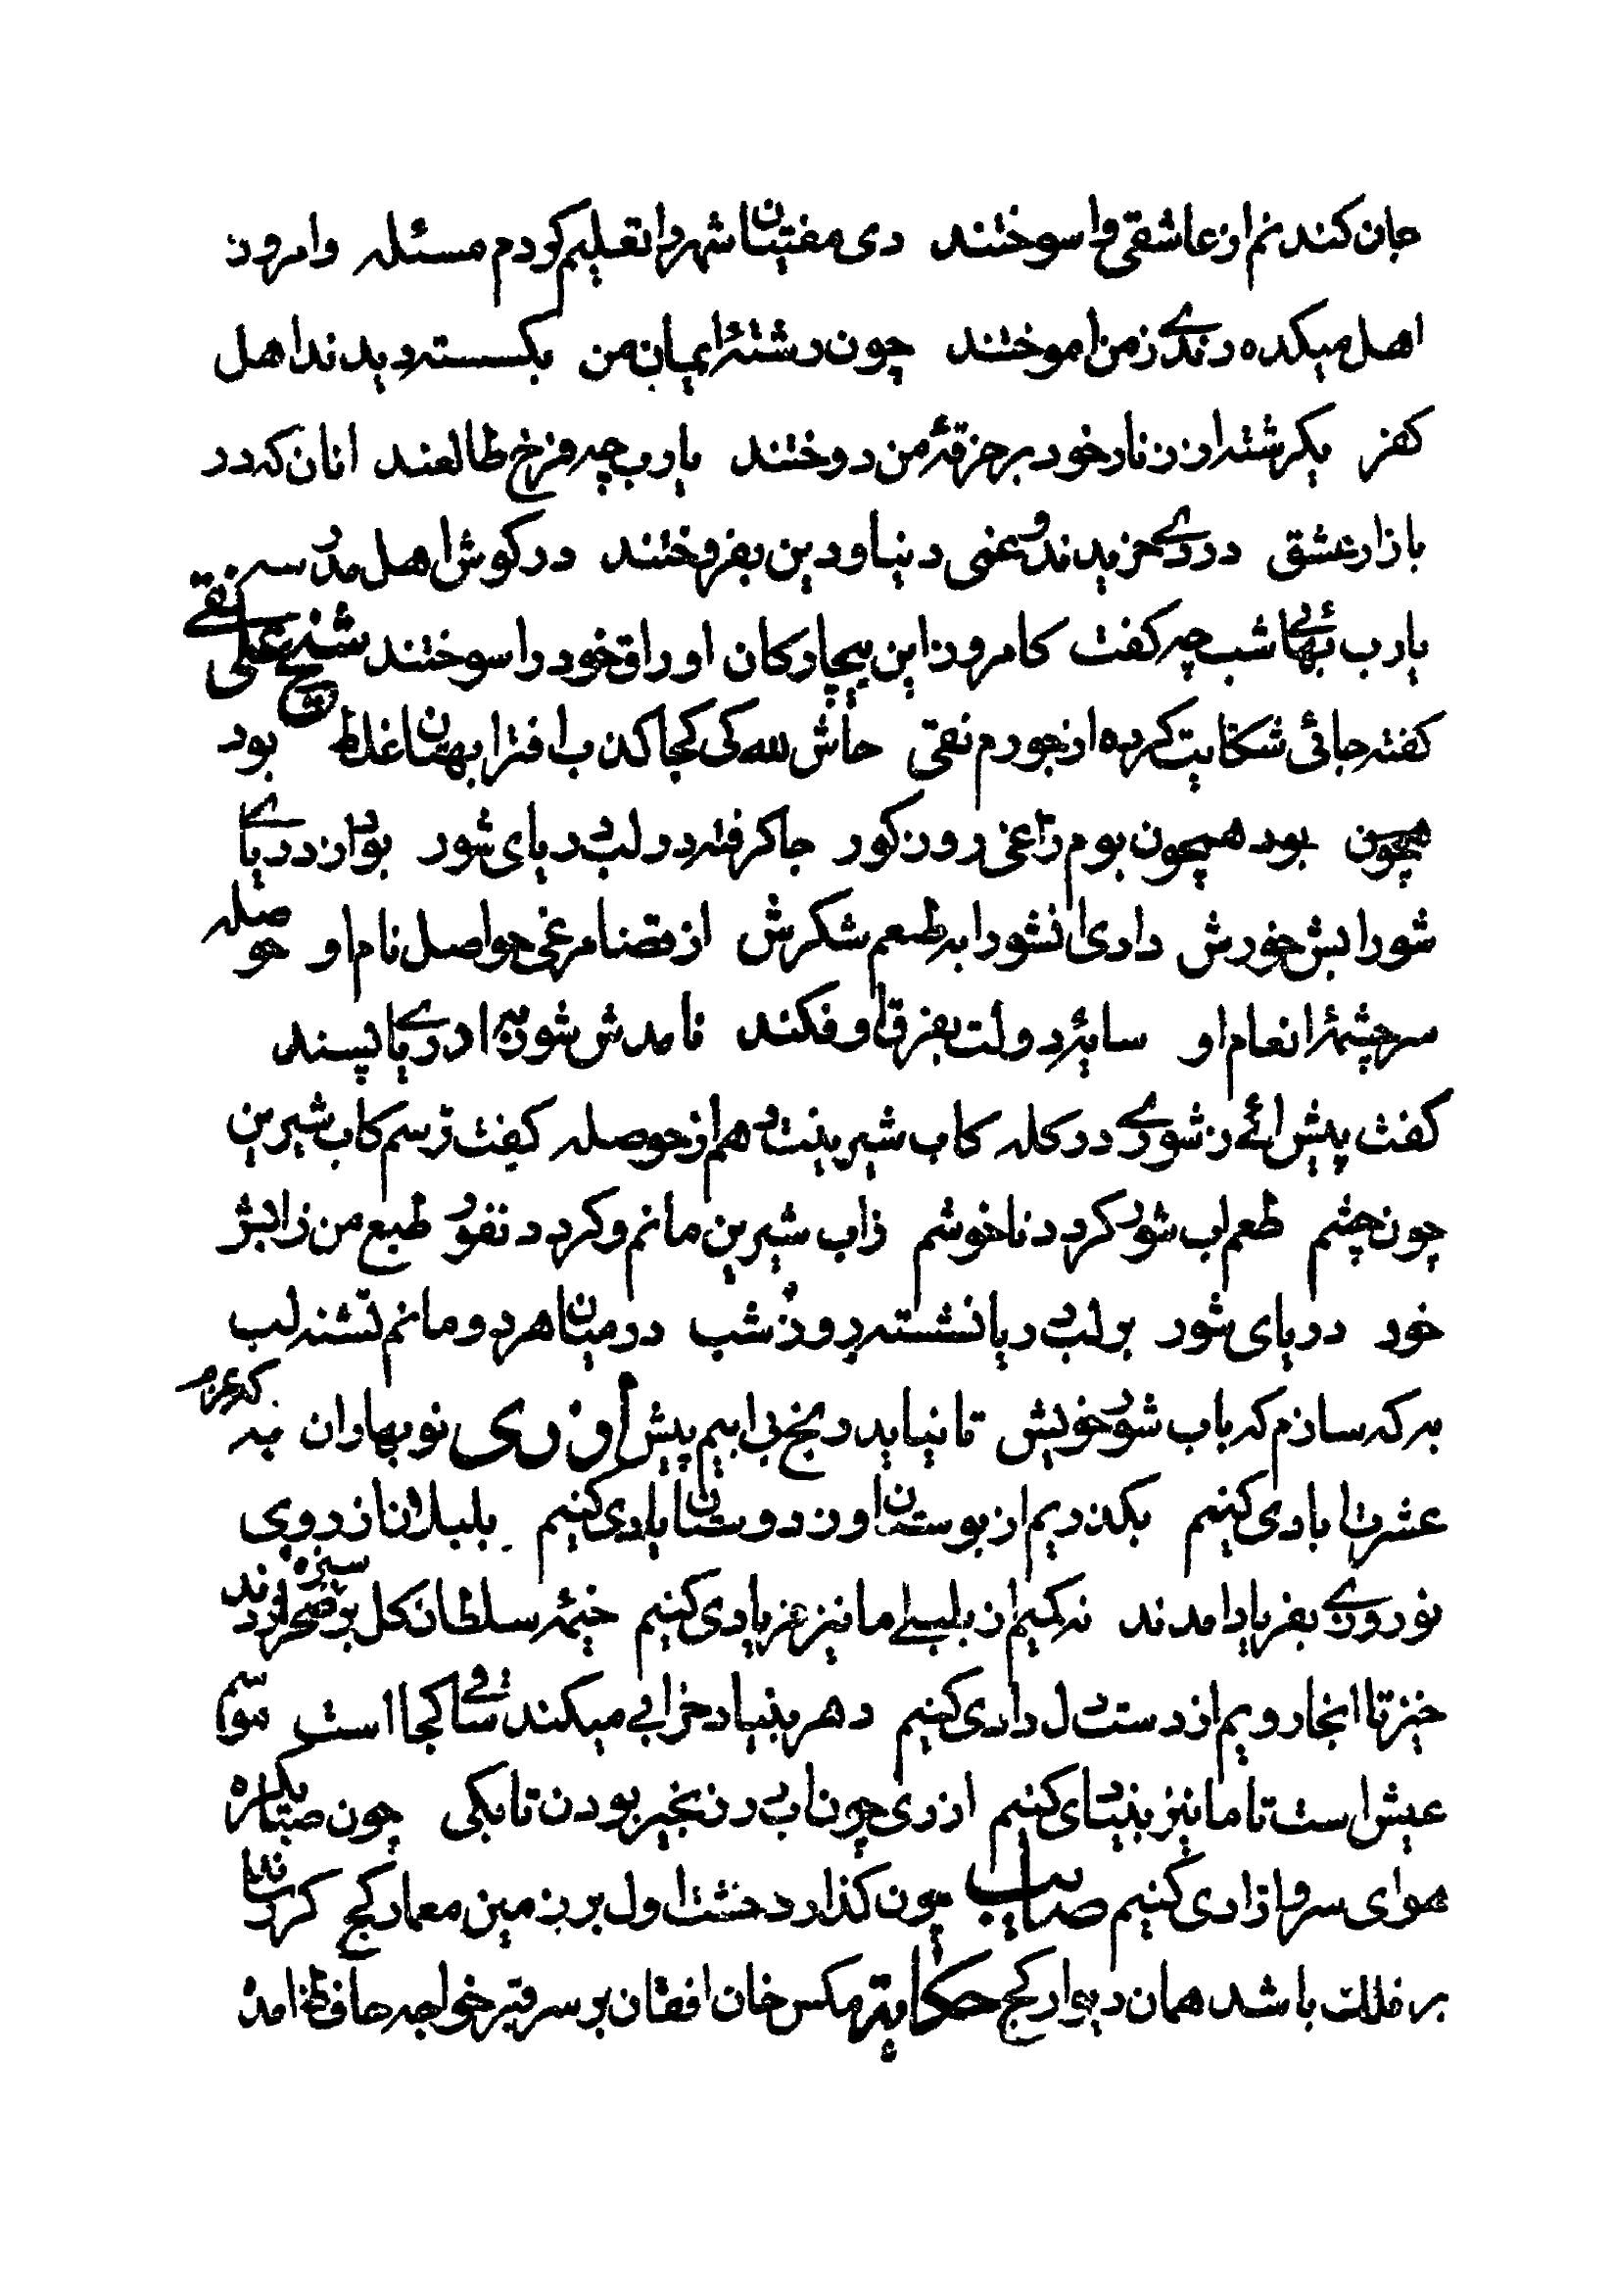 جان کندنم از عاشقی وا سوختند دی مفتیان شهر را تعلیم کردم مسئله وامروز
اهل میکده رندی ز من اموختند چون رشتهٔ ایمان من بکسسته دیدند اهل
کفر یکرشته از زنار خود بر خرقهٔ من دوختند یا رب چه فرخ طالعند انان که در
بازار عشق دردی خریدند و غنی دنیا و دین بفروختند در کوش اهل مدرسه
یا رب بهائی شب چه کفت کامروز این بیچارکان اوراق خود را سوختند شیخ علی نقی
کفته جائی شکایت کرده از جورم نقی حاش لله کی کجا کذب افترا بهتان غلط بود
همچون بود همچون بوم زاغی روز کور جا کرفته در لب دریای شور بودی از دریای
شورابش خورش دادی ان شورابه طعم شکرش از قضا مرغی حواصل نام او حوصله
سرچشمهٔ انعام او سایهٔ دولت بفرق او فکند نامدش شورابه دریا پسند
کفت پیش ائی ز شوری در کله کاب شیرینت دهم از حوصله کفت ترسم کاب شیرین
چون چشم طعم اب شور کردد ناخوشم زاب شیرین مانم و کردد نفور طبع من ز ابشخور
دریای شور بر لب دریا نشسته روز شب در میان هر دو مانم تشنه لب
به که سازم که باب شور خویش تا نیاید رنج بی ابیم پیش اوزری نو بهاران به که عزم
عشرت ابادی کنیم بکذریم از بوستان وز دوستان یادی کنیم بلبلان از روی
نوروزی بفریاد امدند نه کمیم از بلبلی ما نیز فریادی کنیم خیمهٔ سلطان کل بر سبزه صحرا زدند
خیز تا انجا رویم از دست دل دادی کنیم دهر بنیاد خرابی میکند ساقی کجا است موسم
عیش است تا ما نیز بنیادی کنیم از ری چون اب در زنجیر بودن تا بکی چون صبا یکباره
هوای سرو ازادی کنیم صایب چون کذارد خشت اول بر زمین معمار کج کر رساند
بر فلک باشد همان دیوار کج حکایة مکس خان افغان بر سر قبر خواجه حافظ امد